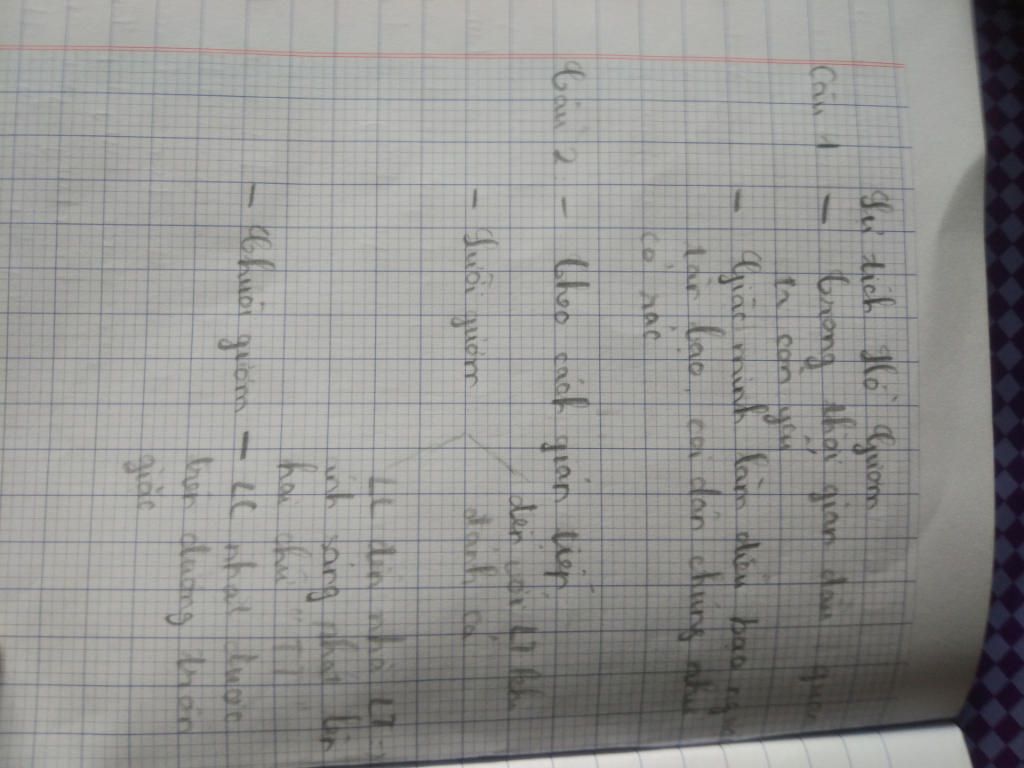 Sự tích Hồ Gươm
Câu 1 - Trong thời gian đầu quân
ta còn yếu
- Giặc minh làm điều bạo ngược
tàn bạo, coi dân chúng như
cỏ rác
Câu 2. - Theo cách gián tiếp,
đến với LT khi
- Lưỡi gươm đánh cá
LL đến nhà LT -
ánh sáng nhất lên
hai chữ "TT
- Chuôi gươm - LL nhặt được
trên đường trốn
giặc